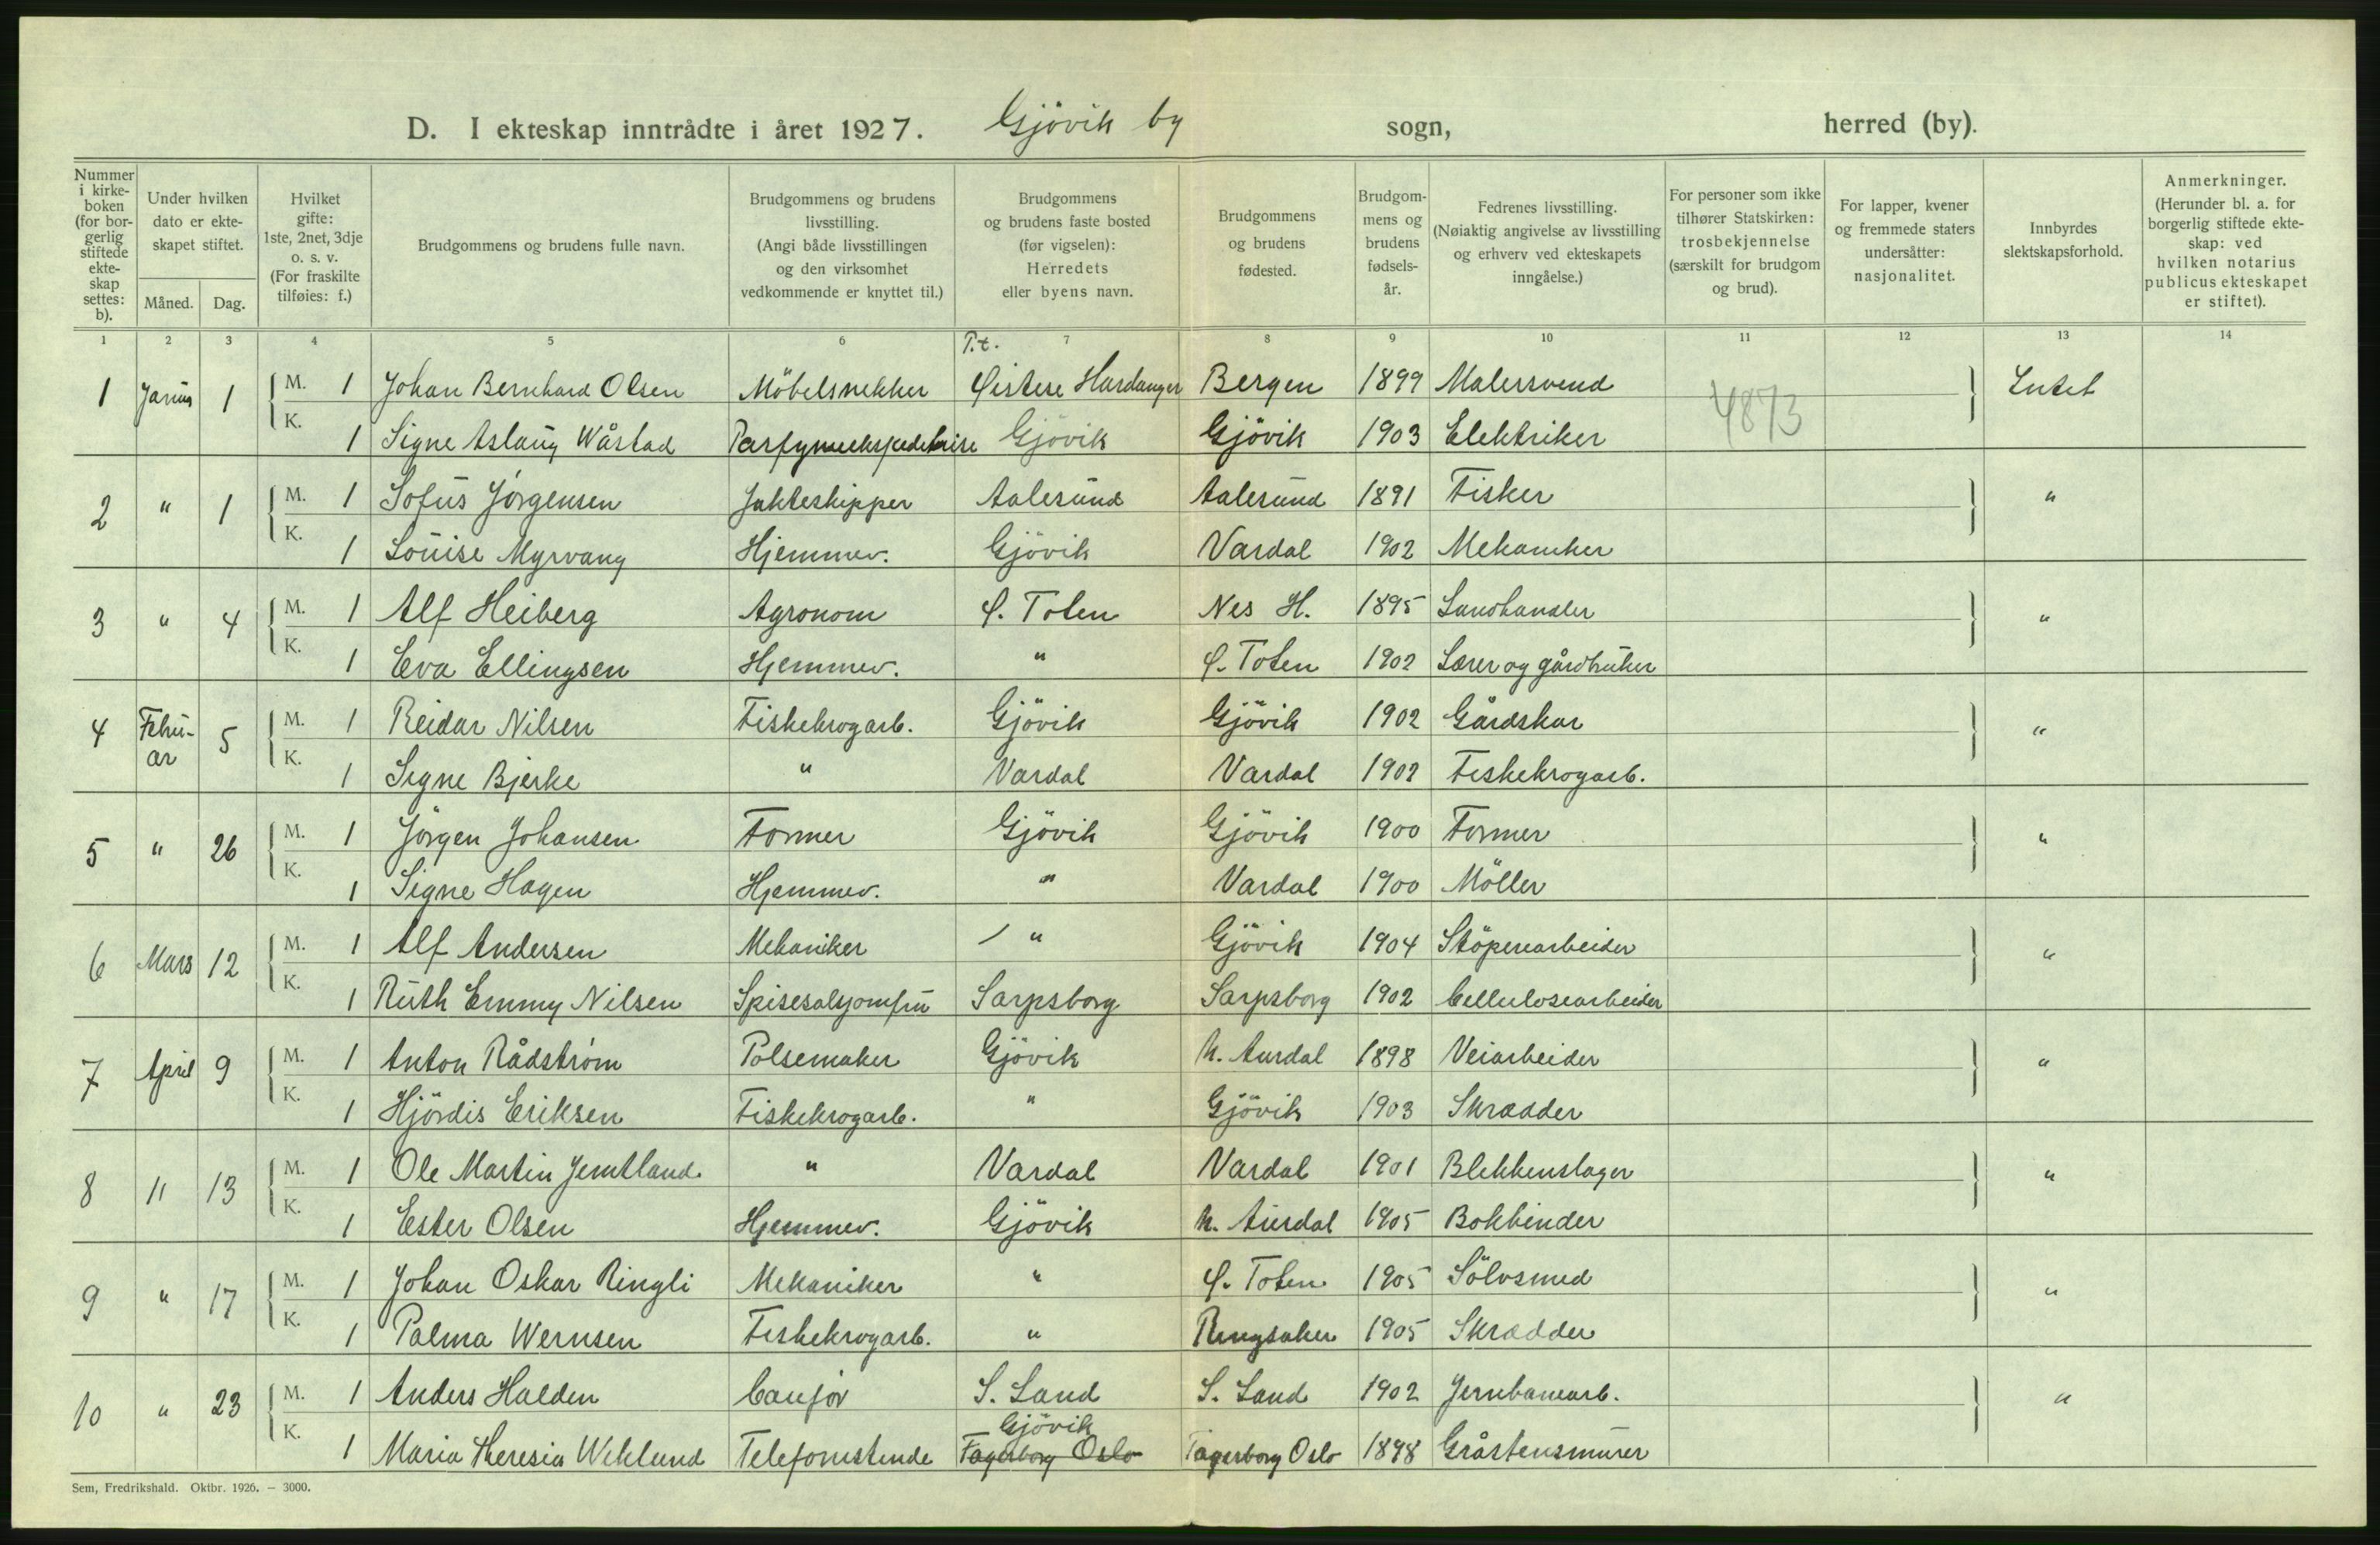 D. I ekteskap inntrådte i året 1927. Gjövik by sogn, herred (by).
Nummer i kirke-boken (for bor-gerlig stiftede ekte-skap settes: b).
Under hvilken dato er ekte-skapet stiftet.
Måned. Dag.
Hvilket gifte: 1ste, 2net, 3dje o. s. v. (For fraskilte tilføies: f.)
Brudgommens og brudens fulle navn.
Brudgommens og brudens livsstilling. (Angi både livsstillingen og den virksomhet vedkommende er knyttet til.)
Brudgommens og brudens faste bosted (før vigselen): Herredets eller byens navn.
Brudgommens og brudens fødested.
Brudgom-mens og brudens fødsels-år.
Fedrenes livsstilling. (Nøiaktig angivelse av livsstilling og erhverv ved ekteskapets inngåelse.)
For personer som ikke tilhører Statskirken: trosbekjennelse (særskilt for brudgom og brud).
For lapper, kvener og fremmede staters undersåtter: nasjonalitet.
Innbyrdes slektskapsforhold.
Anmerkninger. (Herunder bl. a. for borgerlig stiftede ekte-skap: ved hvilken notarius publicus ekteskapet er stiftet).
1 2 3 4 5 6 7 8 9 10 11 12 13 14
P.t.
1 Janūar 1 M. 1 Johan Bernhard Olsen Möbelsnekker Øistese Hardanger Bergen 1899 Malersvend Intet
4873
K. 1 Signe Aslaūg Wåstad Parfymeekspeditrise Gjövik Gjövik 1903 Elektriker
2 " 1 M. 1 Sofūs Jörgensen Jakteskipper Aalesūnd Aalesūnd 1891 Fisker "
K. 1 Loūise Myrvang Hjemmev. Gjövik Vardal 1902 Mekaniker
3 " 4 M. 1 Alf Heiberg Agronom Ø. Toten Nes H. 1895 Landhandler "
K. 1 Eva Ellingsen Hjemmev. " Ø. Toten 1902 Lærer og gårdbrūker
4 Febrū-ar 5 M. 1 Reidar Nilsen Fiskekrogarb. Gjövik Gjövik 1902 Gårdskar "
K. 1 Signe Bjerke " Vardal Vardal 1902 Fiskekrogarb.
5 " 26 M. 1 Jörgen Johansen Former Gjövik Gjövik 1900 Former "
K. 1 Signe Hagen Hjemmev. " Vardal 1900 Möller
6 Mars 12 M. 1 Alf Andersen Mekaniker " Gjövik 1904 Stöperiarbeider "
K. 1 Rūth Emmy Nilsen Spisesalsjomfrū Sarpsborg Sarpsborg 1902 Cellulosearbeider
7 April 9 M. 1 Anton Rådström Pölsemaker Gjövik N. Aurdal 1898 Veiarbeider "
K. 1 Hjördis Eriksen Fiskekrogarb. " Gjövik 1903 Skrædder
8 " 13 M. 1 Ole Martin Jemtland " Vardal Vardal 1901 Blikkenslager "
K. 1 Ester Olsen Hjemmev. Gjövik N. Aūrdal 1905 Bokbinder
9 " 17 M. 1 Johan Oskar Ringli Mekaniker " Ø. Toten 1905 Sölvsmed "
K. 1 Palma Wernsen Fiskekrogarb. " Ringsaker 1905 Skrædder
10 " 23 M. 1 Anders Halden Caufør S. Land S. Land 1902 Jernbanearb. "
Gjövik
K. 1 Maria Theresia Wiklund Telefonistinde Fagerborg Oslo Fagerborg Oslo 1898 Gråstensmūrer
Sem, Fredrikshald. Oktbr. 1926. — 3000.